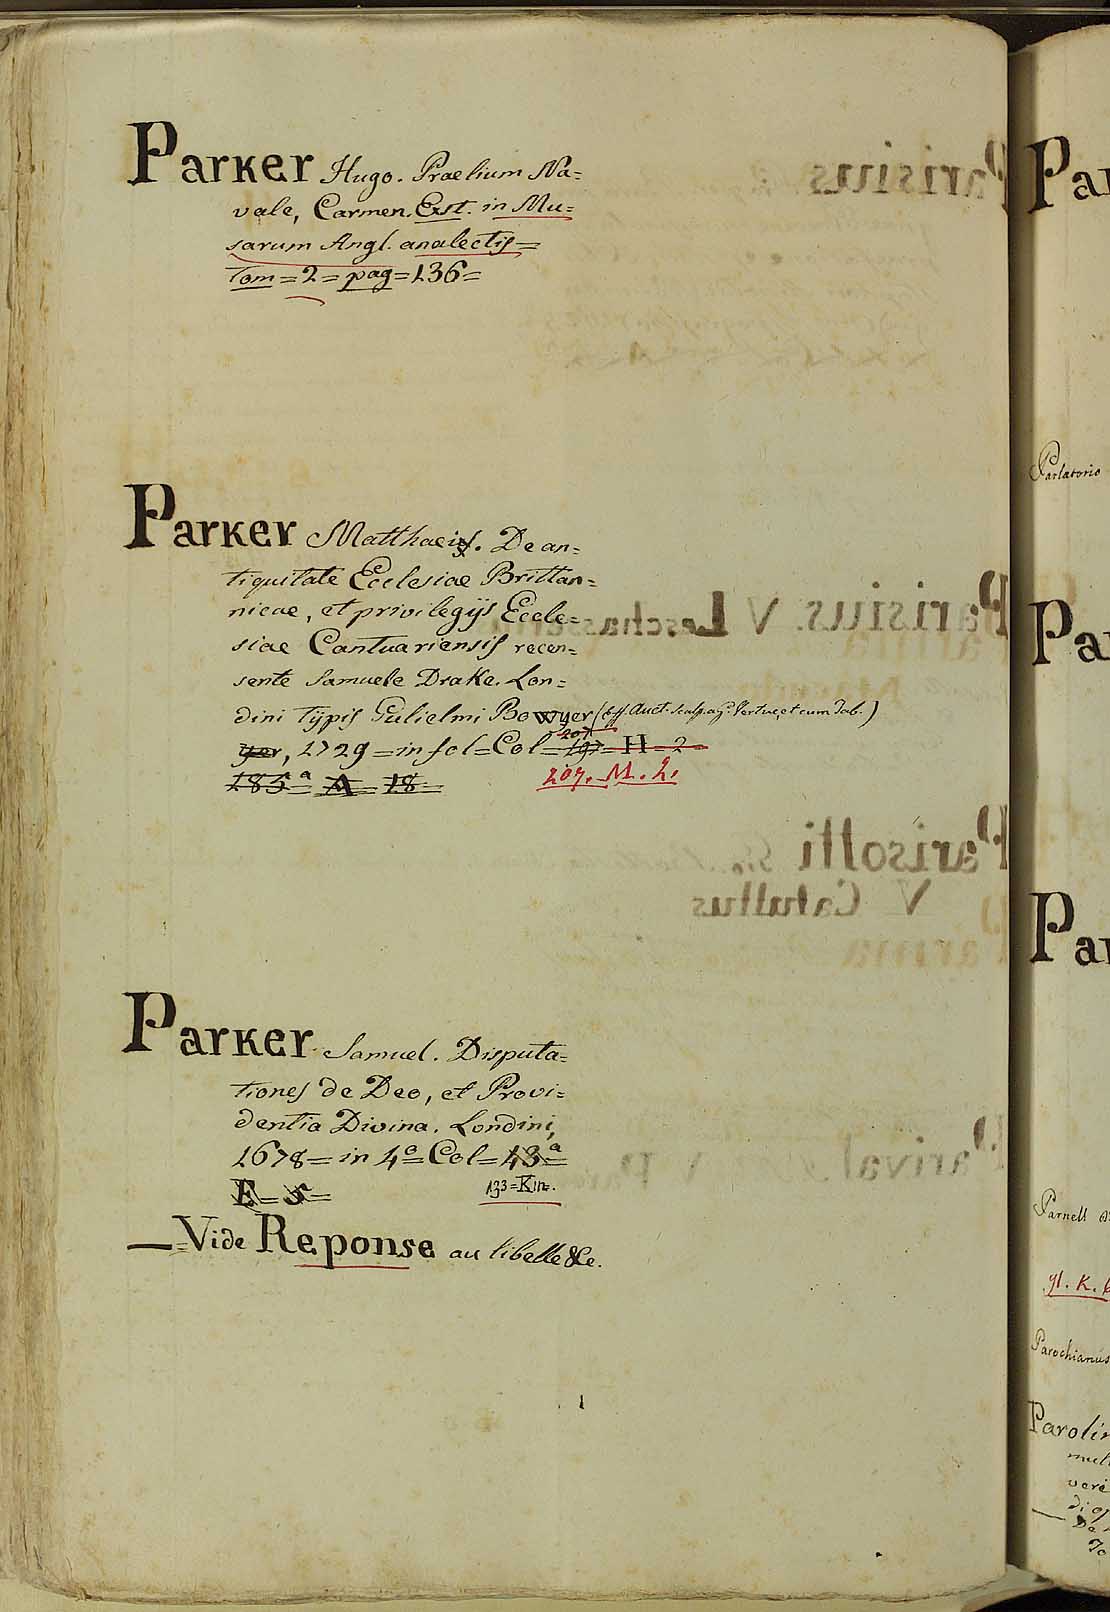 Parker Hugo. Praelium Na=
vale, Carmen. Ext. in Mu=
sarum Angl. analectis=
Tom=2=pag=136=
Parker Matthaeis. De an=
tiquitate Ecclesiae Brittan=
nicae, et privilegijs Eccle=
siae Cantuariensis recen=
sente Samuele Drake. Lon=
dini Typis Gulielmi Bowyer (Eff. Auct. sculp. a G. Vertue, et cum Tab.)
yer, 1729=in fol=Col=197=H=2=
207
185ª A 18=
207. M. 2.
Parker Samuel. Disputa=
tiones de Deo, et Provi=
dentia Divina. Londini,
1678=in 4º Col=43ª
E=5=
133=K.111=.
—=Vide Reponse au libelle &c.
Par
Parlatorio
Par
Par
Parnell
91. K.
Parochianus
Parolin
mult
vere
di
De